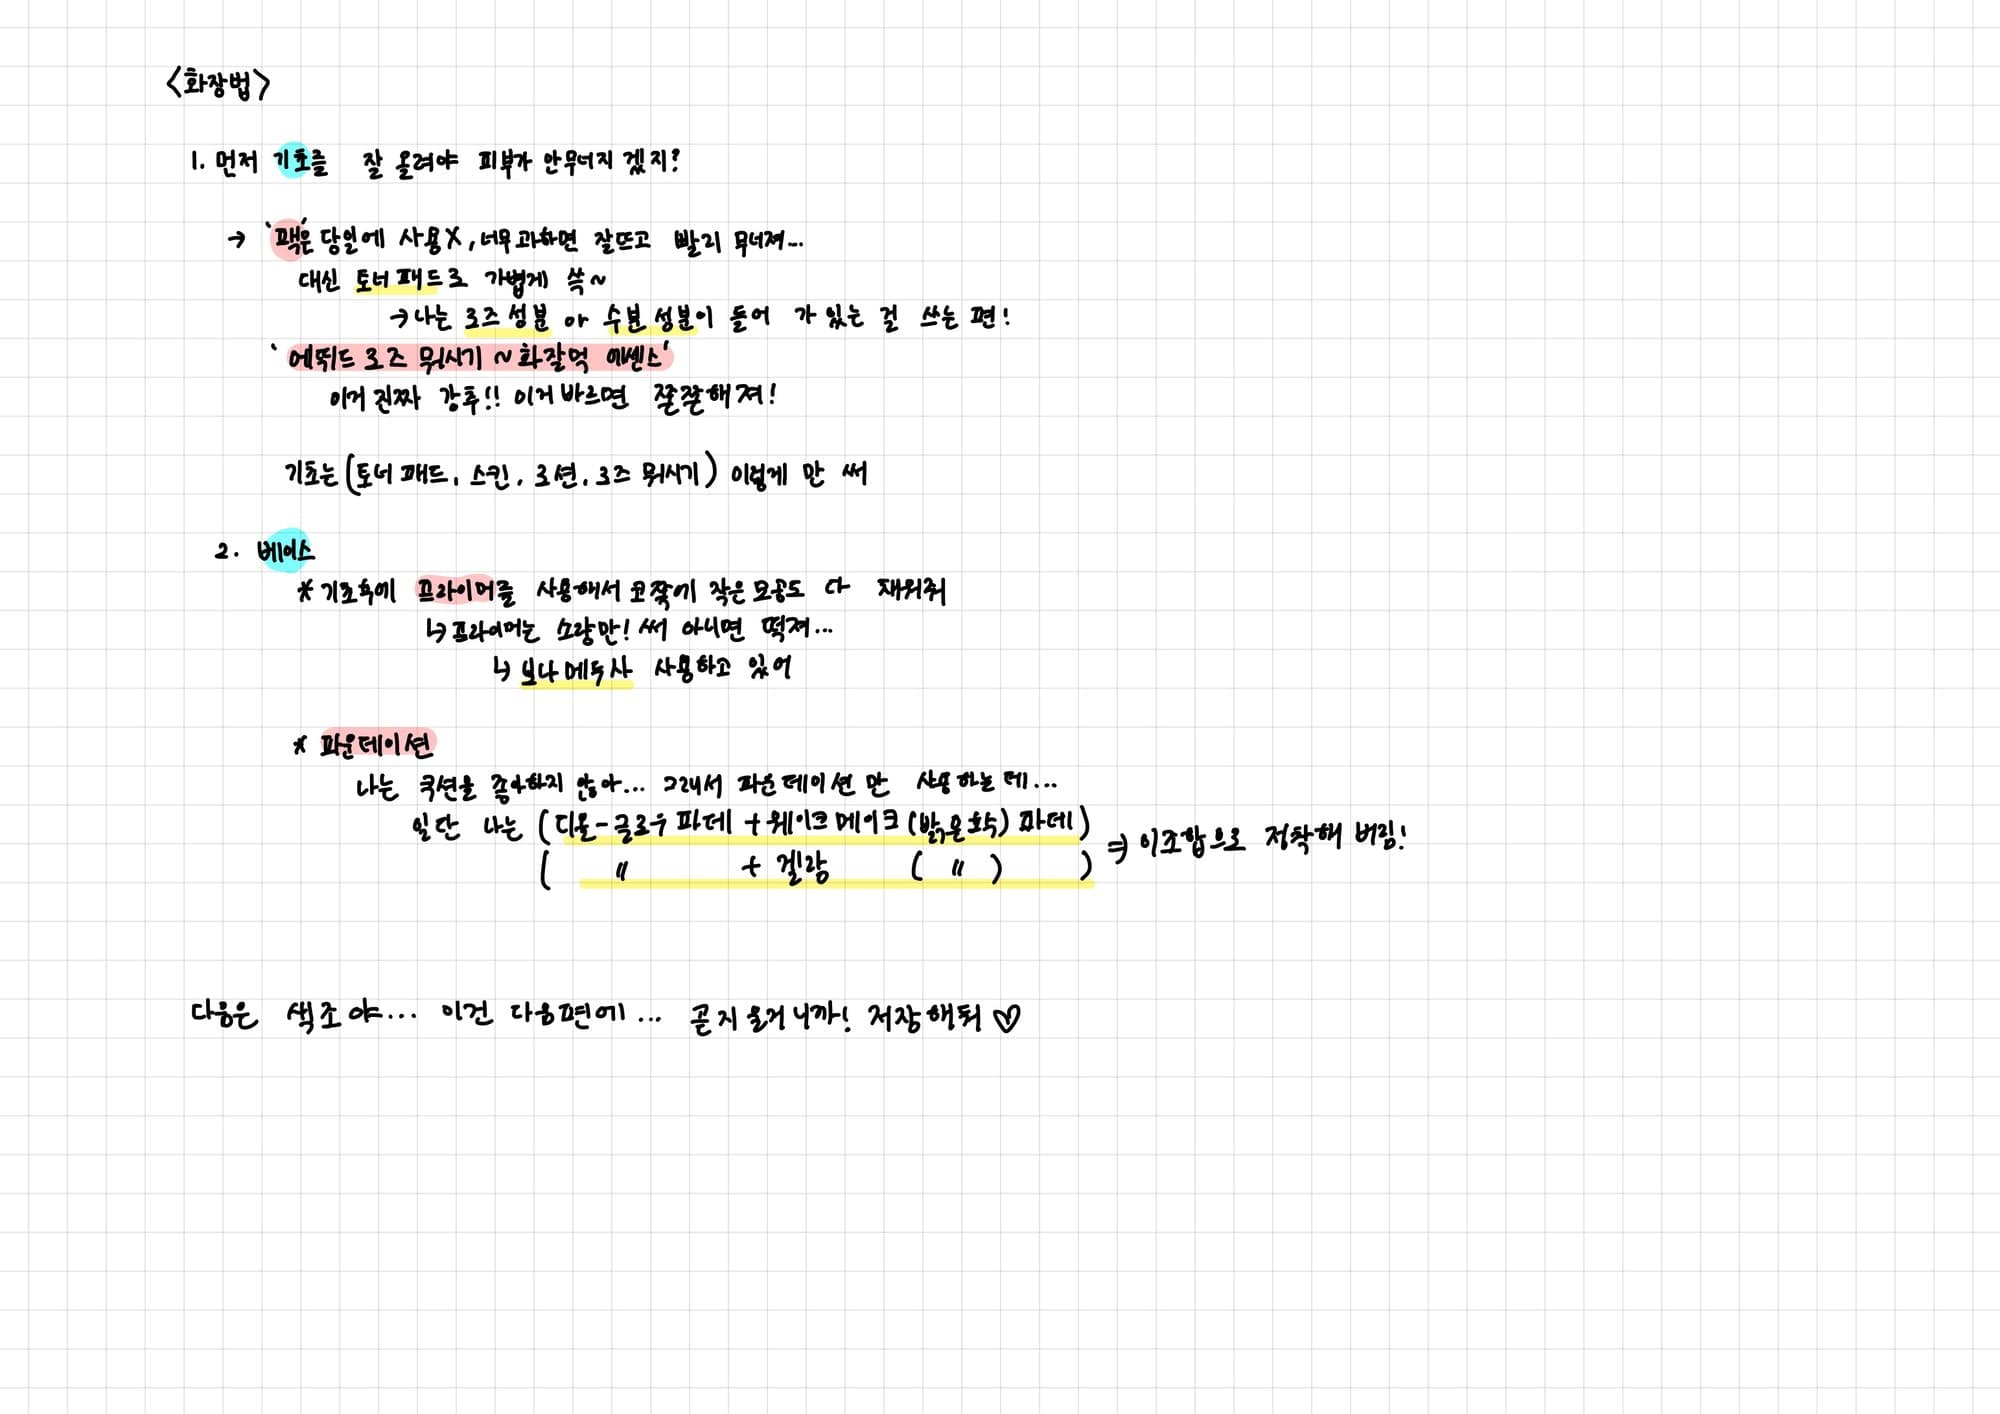 <화장법>
1. 먼저 기초를 잘 올려야 피부가 안무너지 겠지?
→ '팩'은 당일에 사용X, 너무과하면 잘뜨고 빨리 무너져...
대신 토너패드로 가볍게 쓱~
→나는 로즈성분 or 수분성분이 들어 가 있는 걸 쓰는 편!
'에뛰드 로즈 뭐시기 ~ 화잘먹 에센스'
이거 진짜 강추!! 이거바르면 쫀쫀해져!
기초는(토너패드, 스킨, 로션, 로즈 뭐시기) 이렇게 만 써
2. 베이스
* 기초후에 프라이머를 사용해서 코쪽에 작은모공도 다 채워줘
↳프라이머는 소량만! 써 아니면 떡져...
↳ 보나메두사 사용하고 있어
* 파운데이션
나는 쿠션을 좋아하지 않아... 그래서 파운데이션 만 사용하는데...
일단 나는 (디올-글로우파데 + 웨이크메이크(밝은호수) 파데)
( 〃 + 겔랑 ( 〃 ) ) ⇒ 이조합으로 정착해 버림!
다음은 색조야... 이건 다음편에... 곧지 올거니까! 저장해둬 ♡